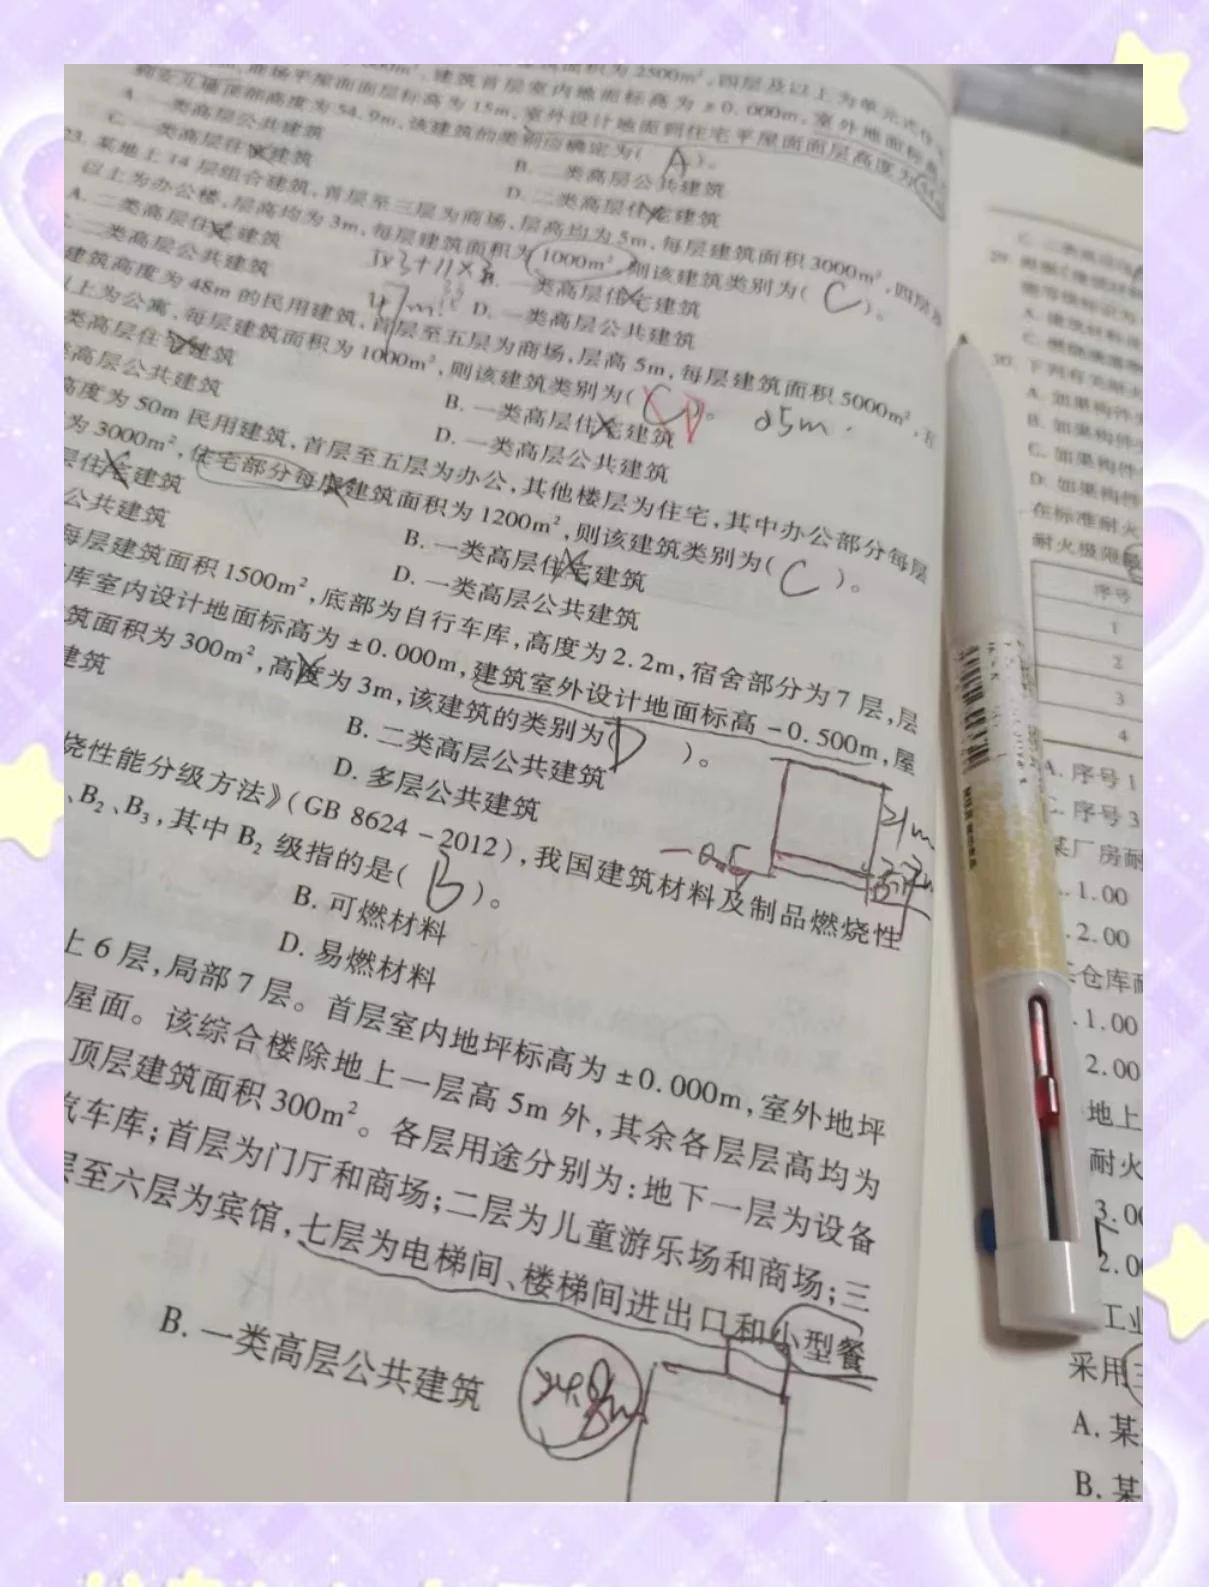 建筑面积为2500m²,四层及以上为单元式住
商场平屋面面层标高为15m,建筑首层室内地面标高为±0.000m,室外地面标高
顶部高度为54.9m,该建筑的类别应确定为( A )。室外设计地面到住宅平屋面面层高度为
A. 一类高层公共建筑
B. 二类高层公共建筑
C. 一类高层住宅建筑
D. 二类高层住宅建筑
23. 某地上14层组合建筑,首层至三层为商场,层高均为5m,每层建筑面积3000m²,四层及
以上为办公楼,层高均为3m,每层建筑面积为1000m²,则该建筑类别为( C )。
A. 二类高层住宅建筑
B. 一类高层住宅建筑
5×3+11×3
C. 二类高层公共建筑
D. 一类高层公共建筑
建筑高度为48m的民用建筑,首层至五层为商场,层高5m,每层建筑面积5000m²,
以上为公寓,每层建筑面积为1000m²,则该建筑类别为( C )。 25m
类高层住宅建筑
B. 一类高层住宅建筑
类高层公共建筑
D. 一类高层公共建筑
高度为50m民用建筑,首层至五层为办公,其他楼层为住宅,其中办公部分每层
为3000m²,住宅部分每层建筑面积为1200m²,则该建筑类别为( C )。
层住宅建筑
B. 一类高层住宅建筑
公共建筑
D. 一类高层公共建筑
每层建筑面积1500m²,底部为自行车库,高度为2.2m,宿舍部分为7层,层
库室内设计地面标高为±0.000m,建筑室外设计地面标高-0.500m,屋
筑面积为300m²,高度为3m,该建筑的类别为( D )。
建筑
B. 二类高层公共建筑
D. 多层公共建筑
21m
烧性能分级方法》(GB 8624-2012),我国建筑材料及制品燃烧性
、B₂、B₃,其中B₂级指的是( B )。
B. 可燃材料
D. 易燃材料
上6层,局部7层。首层室内地坪标高为±0.000m,室外地坪
屋面。该综合楼除地上一层高5m外,其余各层层高均为
顶层建筑面积300m²。各层用途分别为:地下一层为设备
汽车库;首层为门厅和商场;二层为儿童游乐场和商场;三
层至六层为宾馆,七层为电梯间、楼梯间进出口和小型餐
B. 一类高层公共建筑
24.8m
29.
30. 下列有关耐火
A. 如果构件
B. 如果构件
C. 如果构件
D. 如果构件
在标准耐火
耐火极限
序号
1
2
3
4
A. 序号1
C. 序号3
某厂房耐
1.00
2.00
仓库耐
1.00
2.00
地上
耐火
3.00
2.00
工业
采用三
A. 某
B. 某